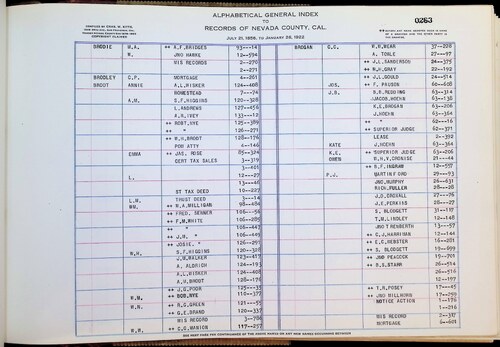 ALPHABETICAL GENERAL INDEX
TO
RECORDS OF NEVADA COUNTY, CAL.
JULY 21, 1856, TO JANUARY 28, 1922
COPYRIGHT CLAIMED
0263
BRODIE W.A. ++ A.F.BRIDGES 93--14
W. JNO HAWKE 12--594
MIS RECORDS 2--270
2--271
BRODLEY C.P. MORTGAGE 4--261
BRODT ANNIE A.L.WISKER 124--408
HOMESTEAD 7--74
A.M. S.F.HIGGINS 120--328
L.ANDREWS 127--456
A.R.IVEY 133--12
++ ROBT.NYE 125--389
++ " 126--271
++ W.H.BRODT 128--176
POR ATTY 4--146
EMMA ++ JAS. ROSE 85--324
CERT TAX SALES 3--319
3--401
L. 12--27
13--46
ST TAX DEED 10--227
L.W. TRUST DEED 3--14
WM. ++ W.A.MILLIGAN 98--484
++ FRED. RENNER 106--56
++ F.M.WHITE 106--285
++ " 106--447
++ J.M. " 106--449
++ JOSIE. " 126--297
W.H. S.F.HIGGINS 120--328
J.M.WALKER 123--417
A. ALDRICH 124--193
A.L.WISKER 124--408
A.W.BRODT 128--176
++ J.G.POOR 125--35
W.M. ++ BOB.NYE 110--4
W.R. ++ R.G.GREEN 121--55
++ G.E.BRAND 120--337
MIS RECORD 3--786
W.R. ++ C.G.MANION 117--257
BROGAN C.C. W.W.WEAR 37--228
A. TOWLE 27--97
++ J.L.SANDERSON 24--375
++ W.H.GRAY 22--192
++ J.L.GOULD 24--514
JOS. ++ F. PAUSON 60--408
J.B. J.R.REDING 63--314
JACOB.HOEHN 63--136
K.E.BROGAN 63--206
J.HOEHN 63--364
++ " 62--16
++ SUPERIOR JUDGE 62--371
LEASE 2--392
KATE J.HOEHN 63--364
K.E. ++ SUPERIOR JUDGE 63--206
OWEN ++ W.H.V.CRONISE 21--44
++ B.F.INGRAM 12--557
P.J. MARTIN FORD 29--93
JNO.MURPHY 26--631
RICH.FULLER 28--28
J.O.GROVALL 27--76
J.E.PERKINS 28--227
S. BLODGETT 31--117
T.M.LINDLEY 12--148
JNO T RENBERTH 13--57
++ C.J.HARRIMAN 12--144
++ E.G.WEBSTER 16--281
++ S. BLODGETT 19--699
++ JNO PEACOCK 19--701
++ D.S.STARR 26--514
26--516
12--197
++ T.R.POSEY 17--45
++ JNO MILLHURN 17--299
NOTICE ACTION 1--176
1--216
MIS RECORD 2--317
MORTGAGE 6--601